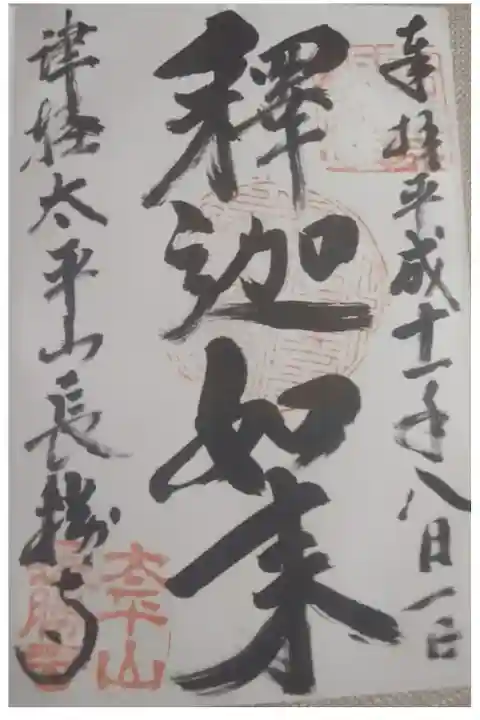 奉拝平成十一年八月一日
釋迦如来
津軽太平山長勝寺
太平山
長勝寺